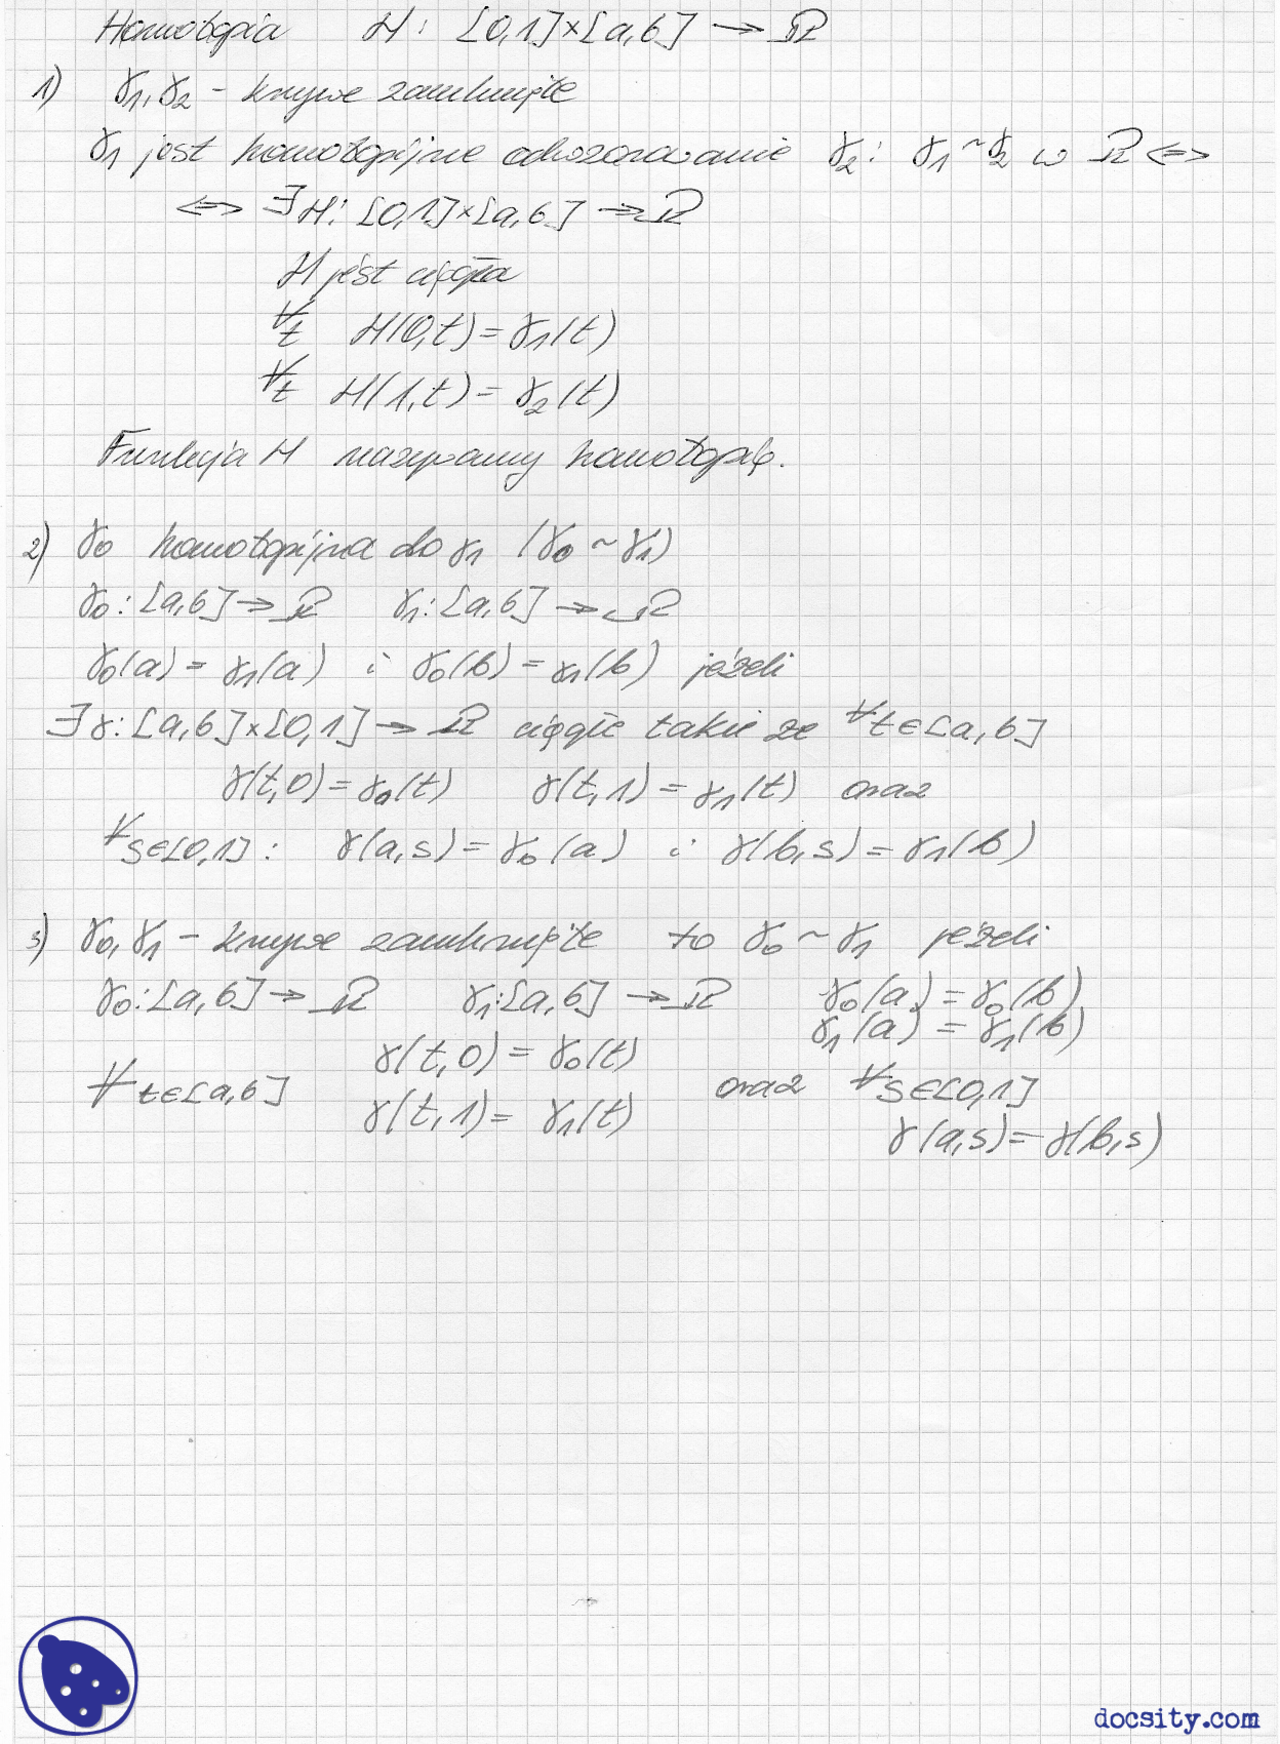 Homotopia H: [0,1]×[a,b] → Ω
1) γ₁, γ₂ - krzywe zamknięte
γ₁ jest homotopijne odwzorowanie γ₂: γ₁ ~ γ₂ w Ω <=>
<=> ∃ H: [0,1]×[a,b] → Ω
H jest ciągła
∀t H(0,t) = γ₁(t)
∀t H(1,t) = γ₂(t)
Funkcja H nazywamy homotopią.
2) γ₀ homotopijna do γ₁ (γ₀ ~ γ₁)
γ₀: [a,b] → Ω γ₁: [a,b] → Ω
γ₀(a) = γ₁(a) i γ₀(b) = γ₁(b) jeżeli
∃ γ: [a,b]×[0,1] → Ω ciągłe takie że ∀ t∈[a,b]
γ(t,0) = γ₀(t) γ(t,1) = γ₁(t) oraz
∀ s∈[0,1]: γ(a,s) = γ₀(a) i γ(b,s) = γ₁(b)
3) γ₀, γ₁ - krzywe zamknięte to γ₀ ~ γ₁ jeżeli
γ₀: [a,b] → Ω γ₁: [a,b] → Ω γ₀(a) = γ₀(b)
γ₁(a) = γ₁(b)
γ(t,0) = γ₀(t)
∀ t∈[a,b] oraz ∀ s∈[0,1]
γ(t,1) = γ₁(t)
γ(a,s) = γ(b,s)
docsity.com